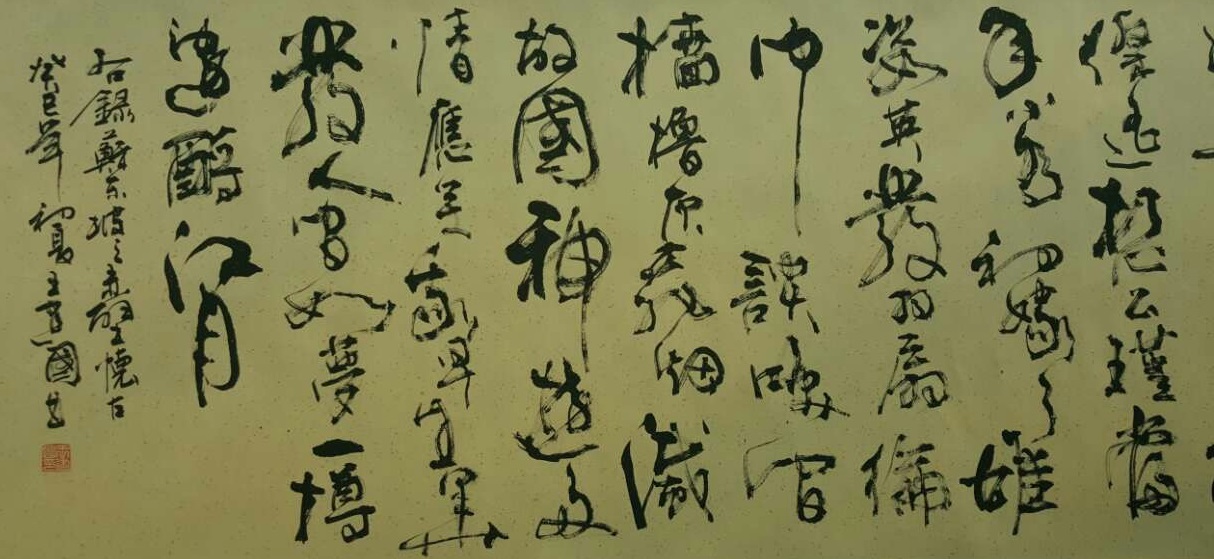 傑遙想公瑾當
年小喬初嫁了雄
姿英發羽扇綸
巾談笑間
檣櫓灰飛烟滅
故國神遊多
情應笑我早生華
髮人間如夢一樽
還酹江月
右錄蘇東坡之赤壁懷古
癸巳年初夏王國書